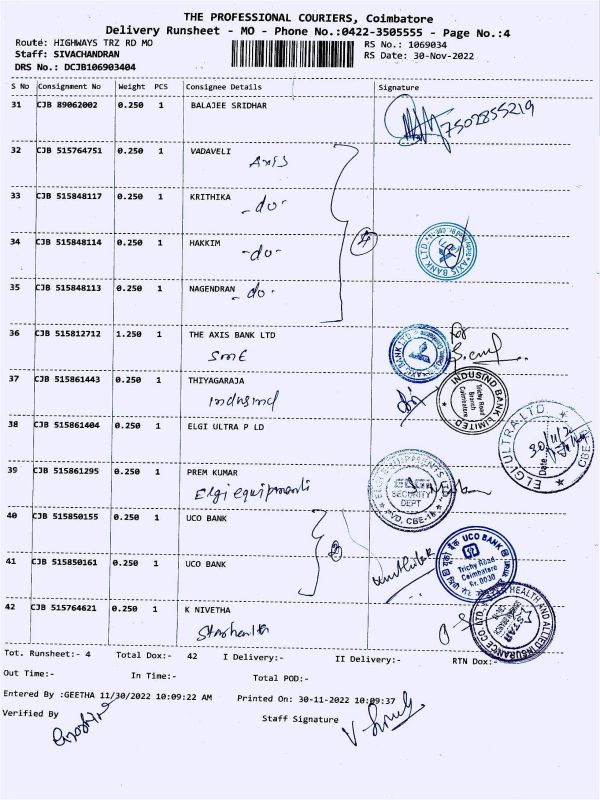 THE PROFESSIONAL COURIERS, Coimbatore
Delivery Runsheet - MO - Phone No.:0422-3505555 - Page No.:4
Route: HIGHWAYS TRZ RD MO
RS No.: 1069034
Staff: SIVACHANDRAN
RS Date: 30-Nov-2022
DRS No.: DCJB106903404
S No Consignment No Weight PCS Consignee Details Signature
31 CJB 89062002 0.250 1 BALAJEE SRIDHAR
7502855219
32 CJB 515764751 0.250 1 VADAVELI
Axis
33 CJB 515848117 0.250 1 KRITHIKA
-do-
34 CJB 515848114 0.250 1 HAKKIM
-do-
4
AXIS BANK LTD.
35 CJB 515848113 0.250 1 NAGENDRAN
-do-
36 CJB 515812712 1.250 1 THE AXIS BANK LTD
SME
AXIS BANK LTD
For
37 CJB 515861443 0.250 1 THIYAGARAJA
indusind
INDUSIND BANK LIMITED
Trichy Road
Branch
Coimbatore
38 CJB 515861404 0.250 1 ELGI ULTRA P LD
ELGI ULTRA LTD.
Date
CBE
39 CJB 515861295 0.250 1 PREM KUMAR
Elgi equipments
ELGI EQUIPMENTS
ELGi
SECURITY
DEPT
40 CJB 515850155 0.250 1 UCO BANK
41 CJB 515850161 0.250 1 UCO BANK
UCO BANK
Trichy Road
Coimbatore
42 CJB 515764621 0.250 1 K NIVETHA
Star health
STAR HEALTH AND ALLIED INSURANCE CO LTD
STAR
Tot. Runsheet:- 4 Total Dox:- 42 I Delivery:- II Delivery:- RTN Dox:-
Out Time:- In Time:- Total POD:-
Entered By :GEETHA 11/30/2022 10:09:22 AM Printed On: 30-11-2022 10:09:37
Verified By Staff Signature